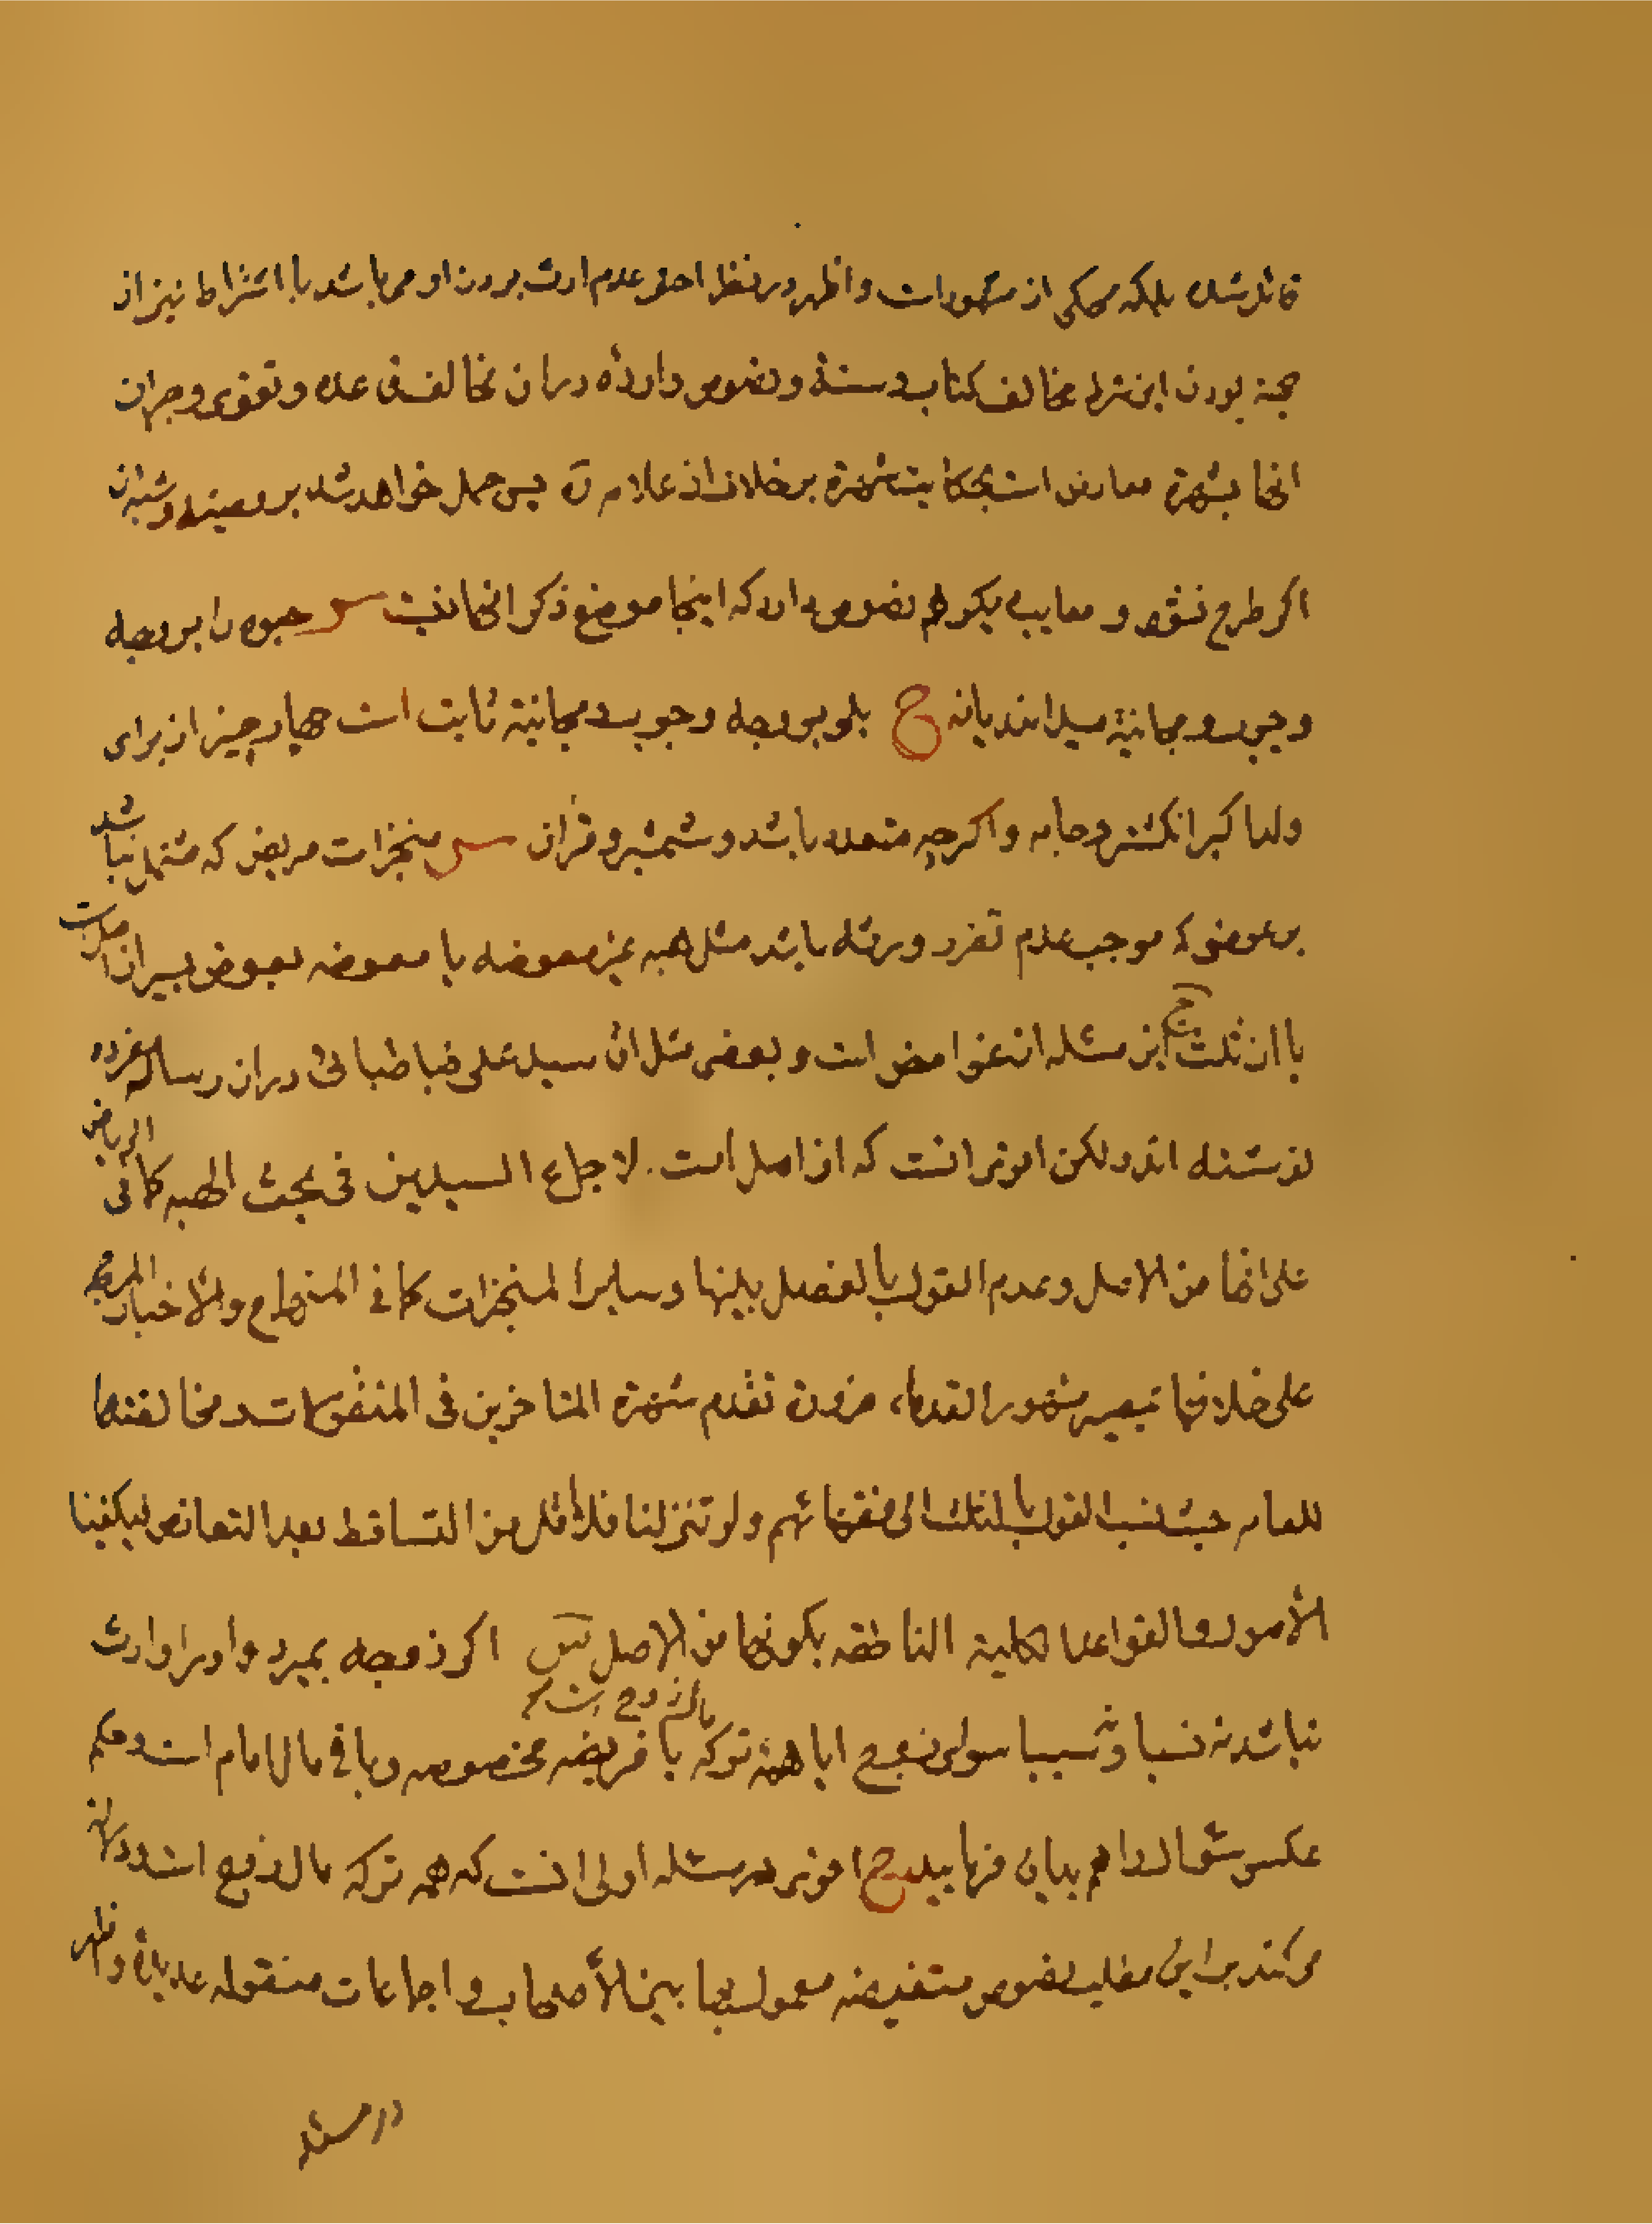 قائل شده بلکه محکی از مشهور است و اظهر در نظر احقر عدم ارث بردن او میباشد با اشتراط نیز از
جهة بودن این شرط مخالف کتاب و سنة و نصوص وارده در ان مخالف فی عده و تقوی و جبران
انها بشهرة معارض است بحکایت شهرة برخلاف از علامه ره پس حمل خواهد شد بر وصیة و شبه ان
اکر طرح نشود و معایب دیکر هم نصوص دارد که اینجا موضع ذکر انها نیست س حبوه را بر وجه
وجوب و مجانیة میدانند یا نه ج بلی بر وجه وجوب و مجانیة ثابت است چهار چیز از برای
ولد اکبر انکشتر و جامه و اکرچه متعدد باشد و شمشیر و قران س منجزات مریض که مشتمل نباشد
بر عوضی که موجب عدم تضرر ورثه باشد مثل هبه غیر معوضه یا معوضه بعوض یسیر از اصل است
یا از ثلث ج این مسئله از غوامض است و بعضی مثل اقا سید علی طباطبائی در ان رساله مفرده
نوشته اند ولکن اقوی انست که از اصل است لاجماع السیدین فی بحث الهبه کما فی الریاض
علی انها من الاصل و عدم القول بالفصل بینها و سایر المنجزات کما فی المنهاج و الاخبار المرجحه
علی خلافها بمصیر مشهور القدماء ضرورة تقدم شهرة المتاخرین فی المنقولات و مخالفتها
للعامه حیث نسب القول بالثلث الی فقهائهم ولو تنزلنا فلا اقل من التساقط بعد التعارض لیکفینا
الأصول و القواعد الکلیة الناطقه بکونها من الاصل س اکر زوجه بمیرد و او را وارث
نباشد نه نسبا و نه سببا سوای زوج ایا همه ترکه مال زوج است یا فریضه مخصوصه و باقی مال امام است و حکم
عکس سؤال را هم بیان فرمایید ج اقوی در مسئله اولی انست که همه ترکه مال زوج است و دلالة
میکند بر این مطلب نصوص مستفیضه معمول بها بین الأصحاب و اجماعات منقوله عدیده و اظهر
در مسئله